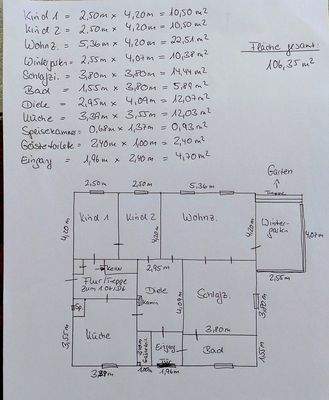 Kind 1 = 2,50m × 4,20m = 10,50 m²
Kind 2 = 2,50m × 4,20m = 10,50 m²
Wohnz. = 5,36m × 4,20m = 22,51 m²
Wintergarten = 2,55m × 4,07m = 10,38 m²
Schlafzi. = 3,80m × 3,80m = 14,44 m²
Bad = 1,55m × 3,80m = 5,89 m²
Diele = 2,95m × 4,09m = 12,07 m²
Küche = 3,39m × 3,55m = 12,03 m²
Speisekammer = 0,68m × 1,37m = 0,93 m²
Gästetoilette = 2,40m × 1,00m = 2,40 m²
Eingang = 1,96m × 2,40m = 4,70 m²
Fläche gesamt:
106,35 m²
Garten
2,50m 2,50m 5,36m
Kind 1 Kind 2 Wohnz. Wintergarten
4,20m 4,20m 4,20m 4,07m
2,55m
2,95m
Flur/Treppe
zum
Diele
Kamin
4,09m
Schlafz.
3,80m
3,80m
Sp.
Küche
3,55m
Eingang
Bad
1,55m
3,39m 1,00m Tür 1,96m